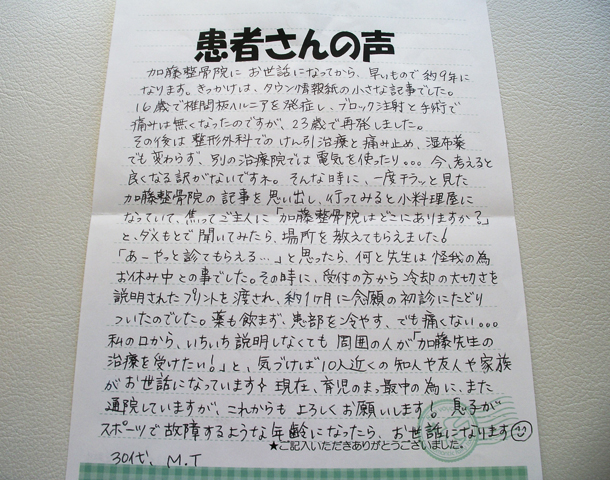 患者さんの声
加藤整骨院に お世話になってから、早いもので約9年に
なります。きっかけは、タウン情報紙の小さな記事でした。
16歳で椎間板ヘルニアを発症し、ブロック注射と手術で
痛みは無くなったのですが、23歳で再発しました。
その後は 整形外科での けん引治療と痛み止め、湿布薬
でも変わらず、別の治療院では電気を使ったり。。。今、考えると
良くなる訳がないですネ。そんな時に、一度チラッと見た
加藤整骨院の 記事を思い出し、行ってみると小料理屋に
なっていて、焦ってご主人に「加藤整骨院はどこにありますか?」
と、ダメもとで聞いてみたら、場所を教えてもらえました!
「あーやっと診てもらえる…」と思ったら、何と先生は怪我の為
お休み中との事でした。その時に、受付の方から 冷却の大切さを
説明されたプリントを渡され、約1ヶ月に念願の初診にたどり
ついたのでした。薬も飲まず、患部を冷やす、でも痛くない。。。
私の口から、いちいち説明しなくても 周囲の人が「加藤先生の
治療を受けたい!」と、気づけば10人近くの知人や友人や家族
がお世話になっています! 現在、育児のまっ最中の為に、また
通院していますが、これからも よろしくお願いします! 息子が
スポーツで故障するような年齢になったら、お世話になります☺
★ご記入いただきありがとうございました。
30代、M.T